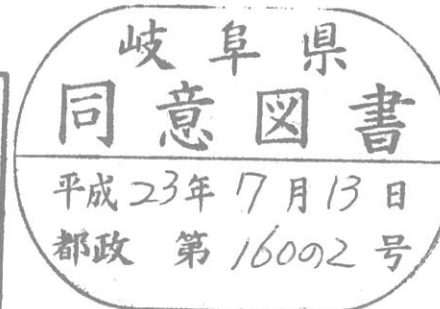 岐阜県
同意図書
平成23年7月13日
都政 第160の2号